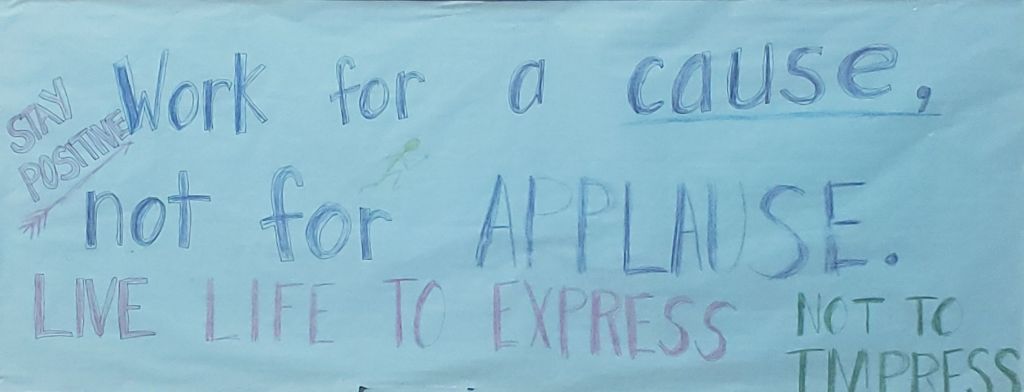 STAY
POSITIVE
Work for a cause,
not for APPLAUSE.
LIVE LIFE TO EXPRESS
NOT TO
IMPRESS